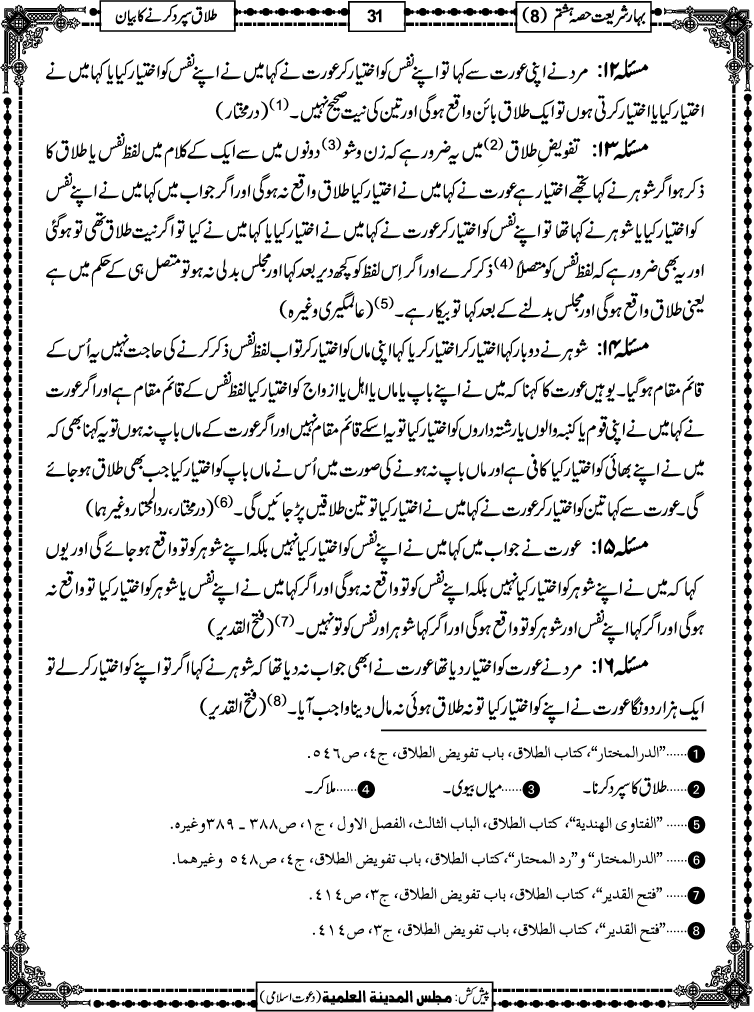 بہار شریعت حصہ ہشتم (8)
31
طلاق سپرد کرنے کا بیان
مسئلہ ۱۲: مرد نے اپنی عورت سے کہا تو اپنے نفس کو اختیار کر عورت نے کہا میں نے اپنے نفس کو اختیار کیا یا کہا میں نے
اختیار کیا یا اختیار کرتی ہوں تو ایک طلاق بائن واقع ہوگی اور تین کی نیت صحیح نہیں۔(1) (درمختار)
مسئلہ ۱۳: تفویضِ طلاق(2) میں یہ ضرور ہے کہ زن وشو(3) دونوں میں سے ایک کے کلام میں لفظ نفس یا طلاق کا
ذکر ہو اگر شوہر نے کہا تجھے اختیار ہے عورت نے کہا میں نے اختیار کیا طلاق واقع نہ ہوگی اور اگر جواب میں کہا میں نے اپنے نفس
کو اختیار کیا یا شوہر نے کہا تھا تو اپنے نفس کو اختیار کر عورت نے کہا میں نے اختیار کیا یا کہا میں نے کیا تو اگر نیت طلاق تھی تو ہوگئی
اور یہ بھی ضرور ہے کہ لفظ نفس کو متصلاً(4) ذکر کرے اور اگر اِس لفظ کو کچھ دیر بعد کہا اور مجلس بدلی نہ ہو تو متصل ہی کے حکم میں ہے
یعنی طلاق واقع ہوگی اور مجلس بدلنے کے بعد کہا تو بیکار ہے۔(5) (عالمگیری وغیرہ)
مسئلہ ۱۴: شوہر نے دو بار کہا اختیار کر اختیار کر یا کہا اپنی ماں کو اختیار کر تو اب لفظ نفس ذکر کرنے کی حاجت نہیں یہ اُس کے
قائم مقام ہوگیا۔ یوہیں عورت کا کہنا کہ میں نے اپنے باپ یا ماں یا اہل یا ازواج کو اختیار کیا لفظ نفس کے قائم مقام ہے اور اگر عورت
نے کہا میں نے اپنی قوم یا کنبہ والوں یا رشتہ داروں کو اختیار کیا تو یہ اسکے قائم مقام نہیں اور اگر عورت کے ماں باپ نہ ہوں تو یہ کہنا بھی کہ
میں نے اپنے بھائی کو اختیار کیا کافی ہے اور ماں باپ نہ ہونے کی صورت میں اُس نے ماں باپ کو اختیار کیا جب بھی طلاق ہوجائے
گی۔ عورت سے کہا تین کو اختیار کر عورت نے کہا میں نے اختیار کیا تو تین طلاقیں پڑ جائیں گی۔(6) (درمختار، ردالمحتار وغیرہما)
مسئلہ ۱۵: عورت نے جواب میں کہا میں نے اپنے نفس کو اختیار کیا نہیں بلکہ اپنے شوہر کو تو واقع ہوجائے گی اور یوں
کہا کہ میں نے اپنے شوہر کو اختیار کیا نہیں بلکہ اپنے نفس کو تو واقع نہ ہوگی اور اگر کہا میں نے اپنے نفس یا شوہر کو اختیار کیا تو واقع نہ
ہوگی اور اگر کہا اپنے نفس اور شوہر کو تو واقع ہوگی اور اگر کہا شوہر اور نفس کو تو نہیں۔(7) (فتح القدیر)
مسئلہ ۱۶: مرد نے عورت کو اختیار دیا تھا عورت نے ابھی جواب نہ دیا تھا کہ شوہر نے کہا اگر تو اپنے کو اختیار کرلے تو
ایک ہزار دونگا عورت نے اپنے کو اختیار کیا تو نہ طلاق ہوئی نہ مال دینا واجب آیا۔(8) (فتح القدیر)
1......”الدرالمختار“، کتاب الطلاق، باب تفویض الطلاق، ج٤، ص٥٤٦.
2......طلاق کا سپرد کرنا۔ 3......میاں بیوی۔ 4......ملا کر۔
5......”الفتاوی الھندیة“، کتاب الطلاق، الباب الثالث، الفصل الاول، ج١، ص٣٨٨ ـ ٣٨٩ وغیرہ.
6......”الدرالمختار“ و”رد المحتار“، کتاب الطلاق، باب تفویض الطلاق، ج٤، ص٥٤٨ وغیرھما.
7......”فتح القدیر“، کتاب الطلاق، باب تفویض الطلاق، ج٣، ص٤١٤.
8......”فتح القدیر“، کتاب الطلاق، باب تفویض الطلاق، ج٣، ص٤١٤.
پیش کش: مجلس المدینة العلمیة (دعوت اسلامی)